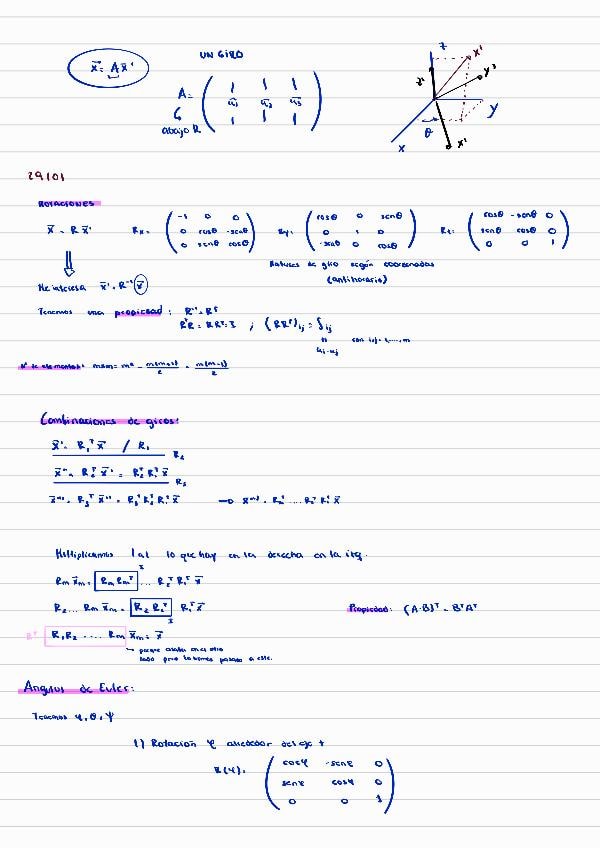 x⃗ = A x⃗'
UN GIRO
A = ( | | | ; u₁ u₂ u₃ ; | | | )
abajo R
z x' y' z' y θ x x'
29/01
ROTACIONES
x⃗ = R x⃗'
Rx = ( -1 0 0 ; 0 cosθ -senθ ; 0 senθ cosθ )
Ry = ( cosθ 0 senθ ; 0 1 0 ; -senθ 0 cosθ )
Rz = ( cosθ -senθ 0 ; senθ cosθ 0 ; 0 0 1 )
Matrices de giro según coordenadas
(antihorario)
Me interesa x⃗' = R⁻¹ x⃗
Tenemos una propiedad: R⁻¹ = Rᵀ
RᵀR = RRᵀ = I ; (RRᵀ)ij = δij
ui·uj con i,j = 1,...,m
Nº de elementos: m×m = m² - m(m+1)/2 = m(m-1)/2
Combinaciones de giros:
x⃗' = R₁ᵀ x⃗ / R₁
R₂
x⃗'' = R₂ᵀ x⃗' = R₂ᵀ R₁ᵀ x⃗
R₃
x⃗''' = R₃ᵀ x⃗'' = R₃ᵀ R₂ᵀ R₁ᵀ x⃗ → x⃗ᵐ⁾ = Rₘᵀ ... R₂ᵀ R₁ᵀ x⃗
Multiplicamos lo que hay en la derecha en la izq.
I
Rm x⃗m = Rm Rmᵀ ... R₂ᵀ R₁ᵀ x⃗
R₂ ... Rm x⃗m = R₂ R₂ᵀ R₁ᵀ x⃗
I
Propiedad: (A·B)ᵀ = BᵀAᵀ
Rᵀ R₁R₂ .... Rm x⃗m = x⃗
porque estaba en el otro
lado pero lo hemos pasado a este.
Angulos de Euler:
Tenemos φ, θ, ψ
1) Rotacion φ alrededor del eje z
R(φ) = ( cosφ -senφ 0 ; senφ cosφ 0 ; 0 0 1 )